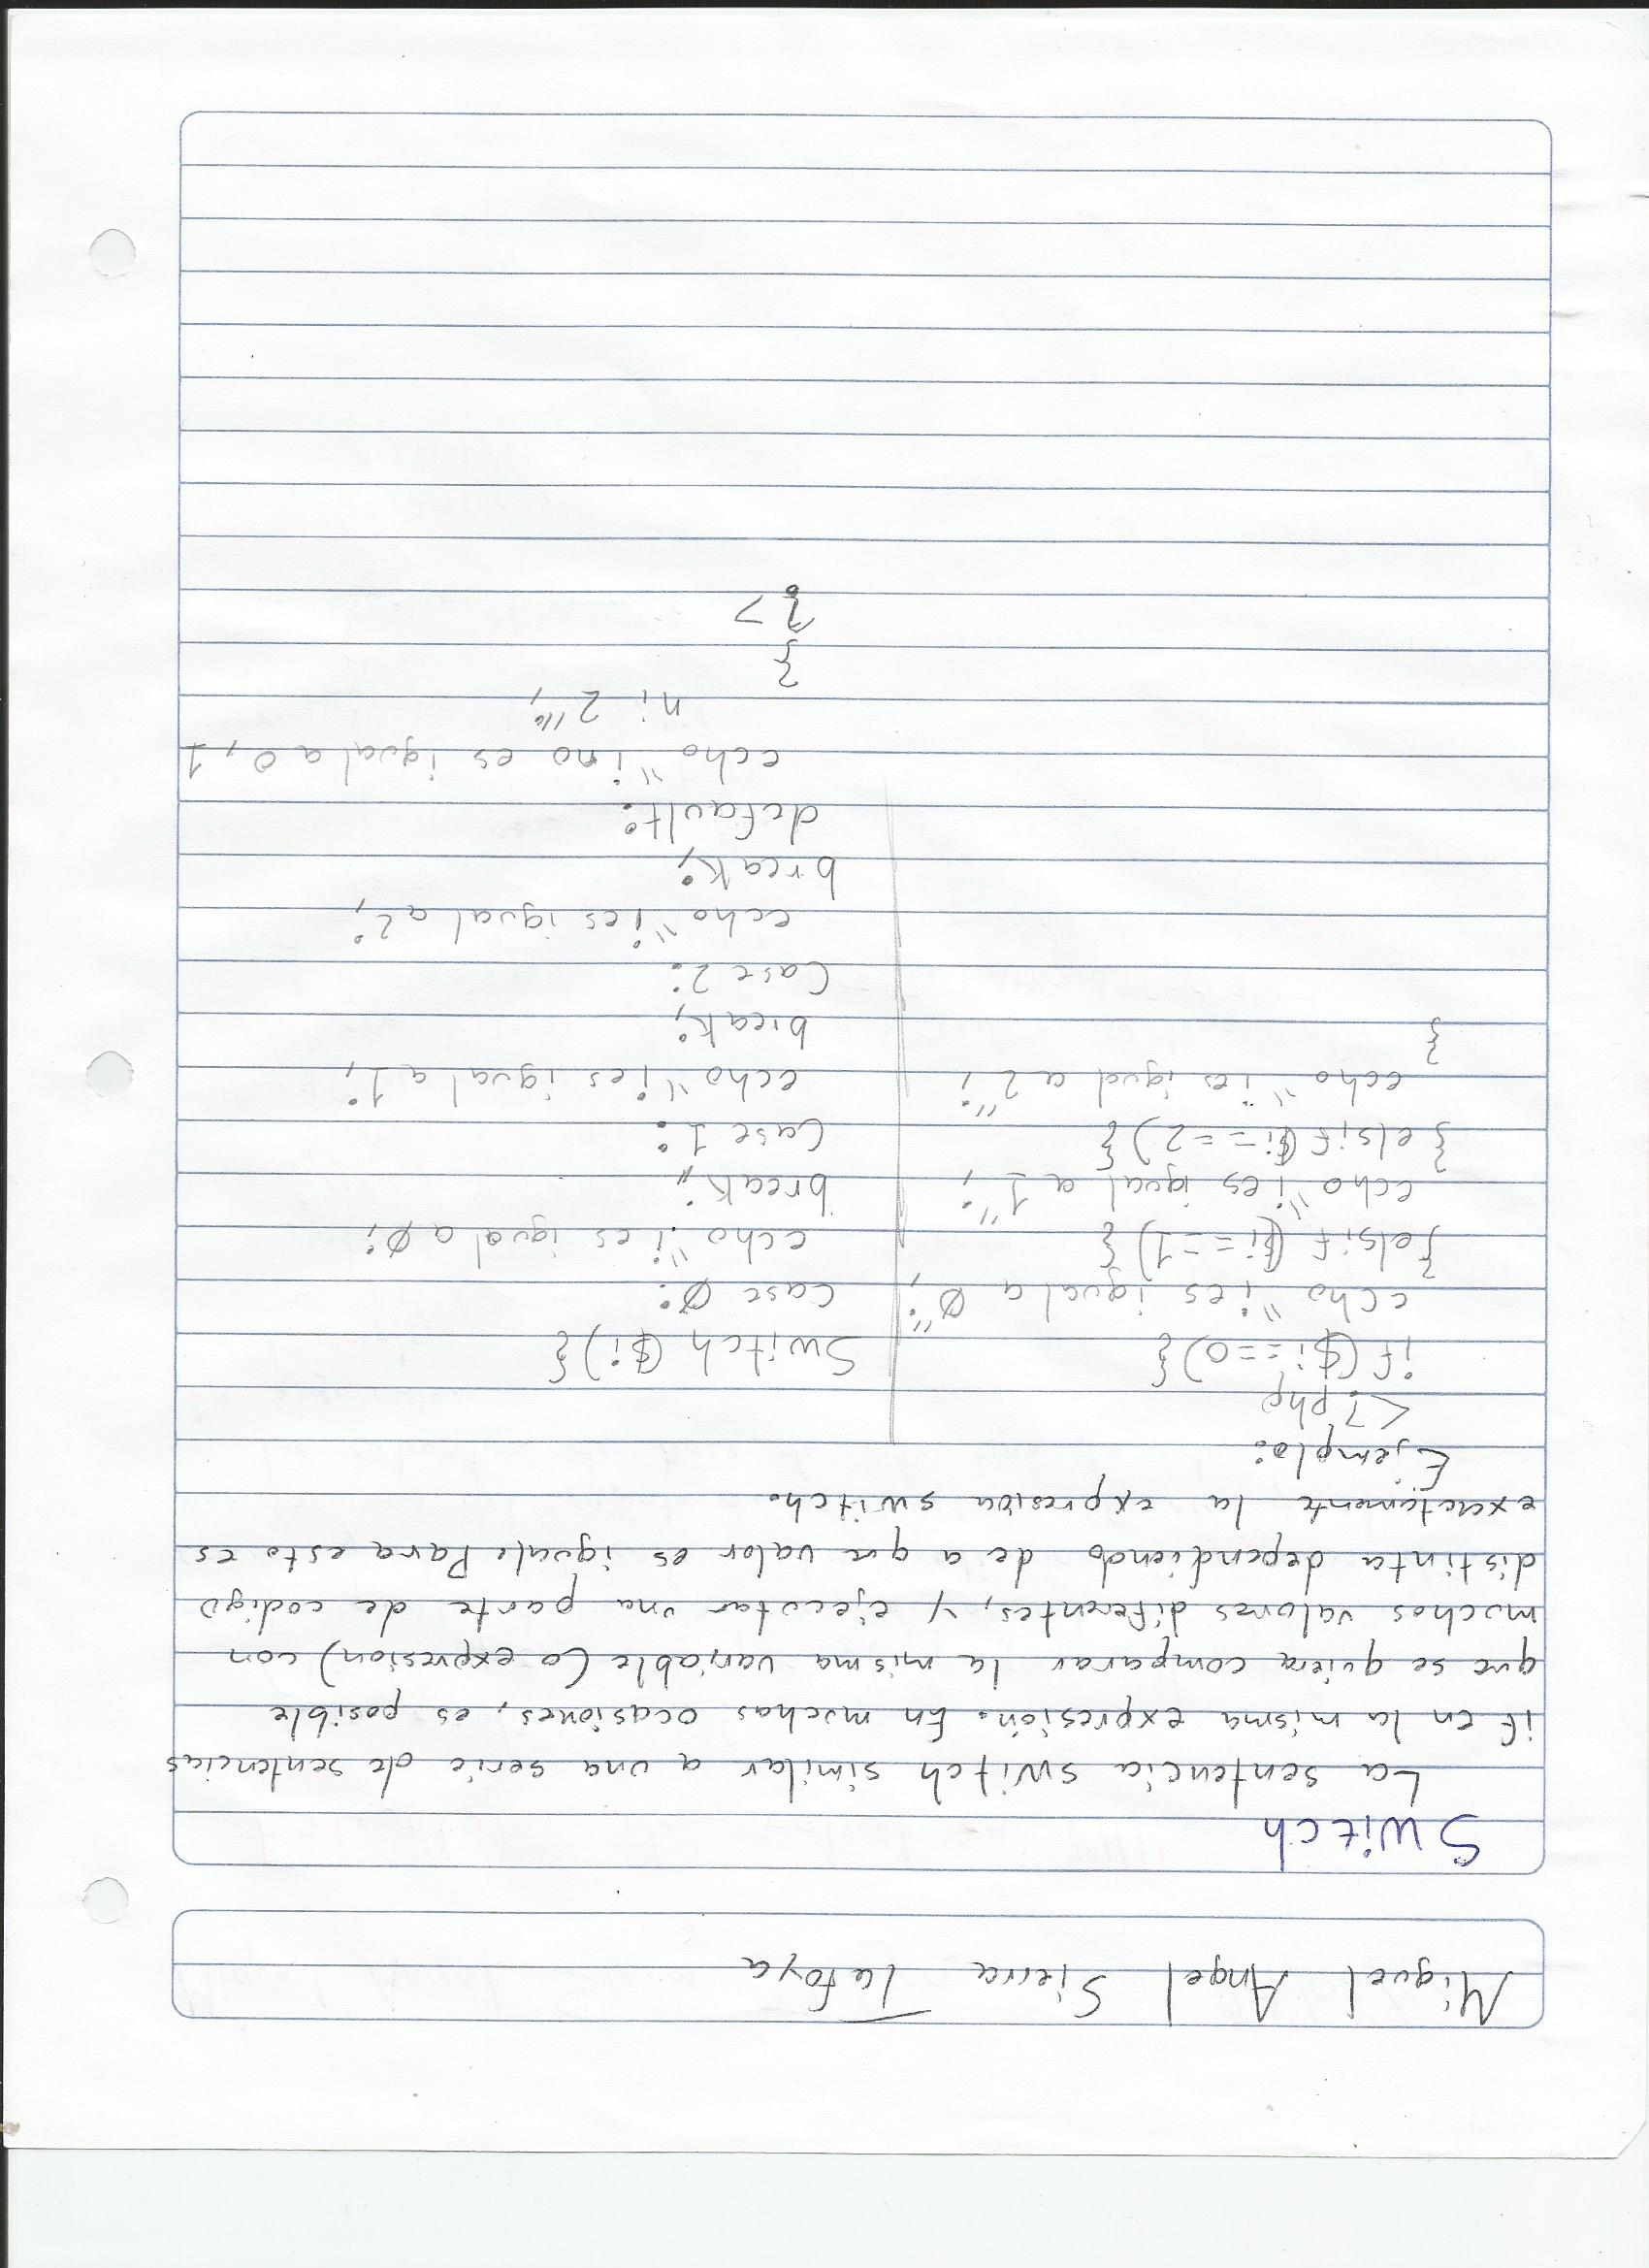 Miguel Angel Sierra Tafoya
Switch
La sentencia switch similar a una serie de sentencias
if en la misma expresión. En muchas ocasiones, es posible
que se quiera comparar la misma variable (o expresion) con
muchos valores diferentes, y ejecutar una parte de codigo
distinta dependiendo de a que valor es igual. Para esto es
exactamente la expresion switch.
Ejemplo:
<?php
if ($i==0){
echo "i es igual a 0";
}elsif ($i==1){
echo "i es igual a 1";
}elsif ($i==2){
echo "i es igual a 2";
}
Switch ($i){
case 0:
echo "i es igual a 0;
break;
Case 1:
echo "i es igual a 1;
break;
Case 2:
echo "i es igual a 2;
break;
default:
echo "i no es igual a 0, 1
ni 2";
}
?>